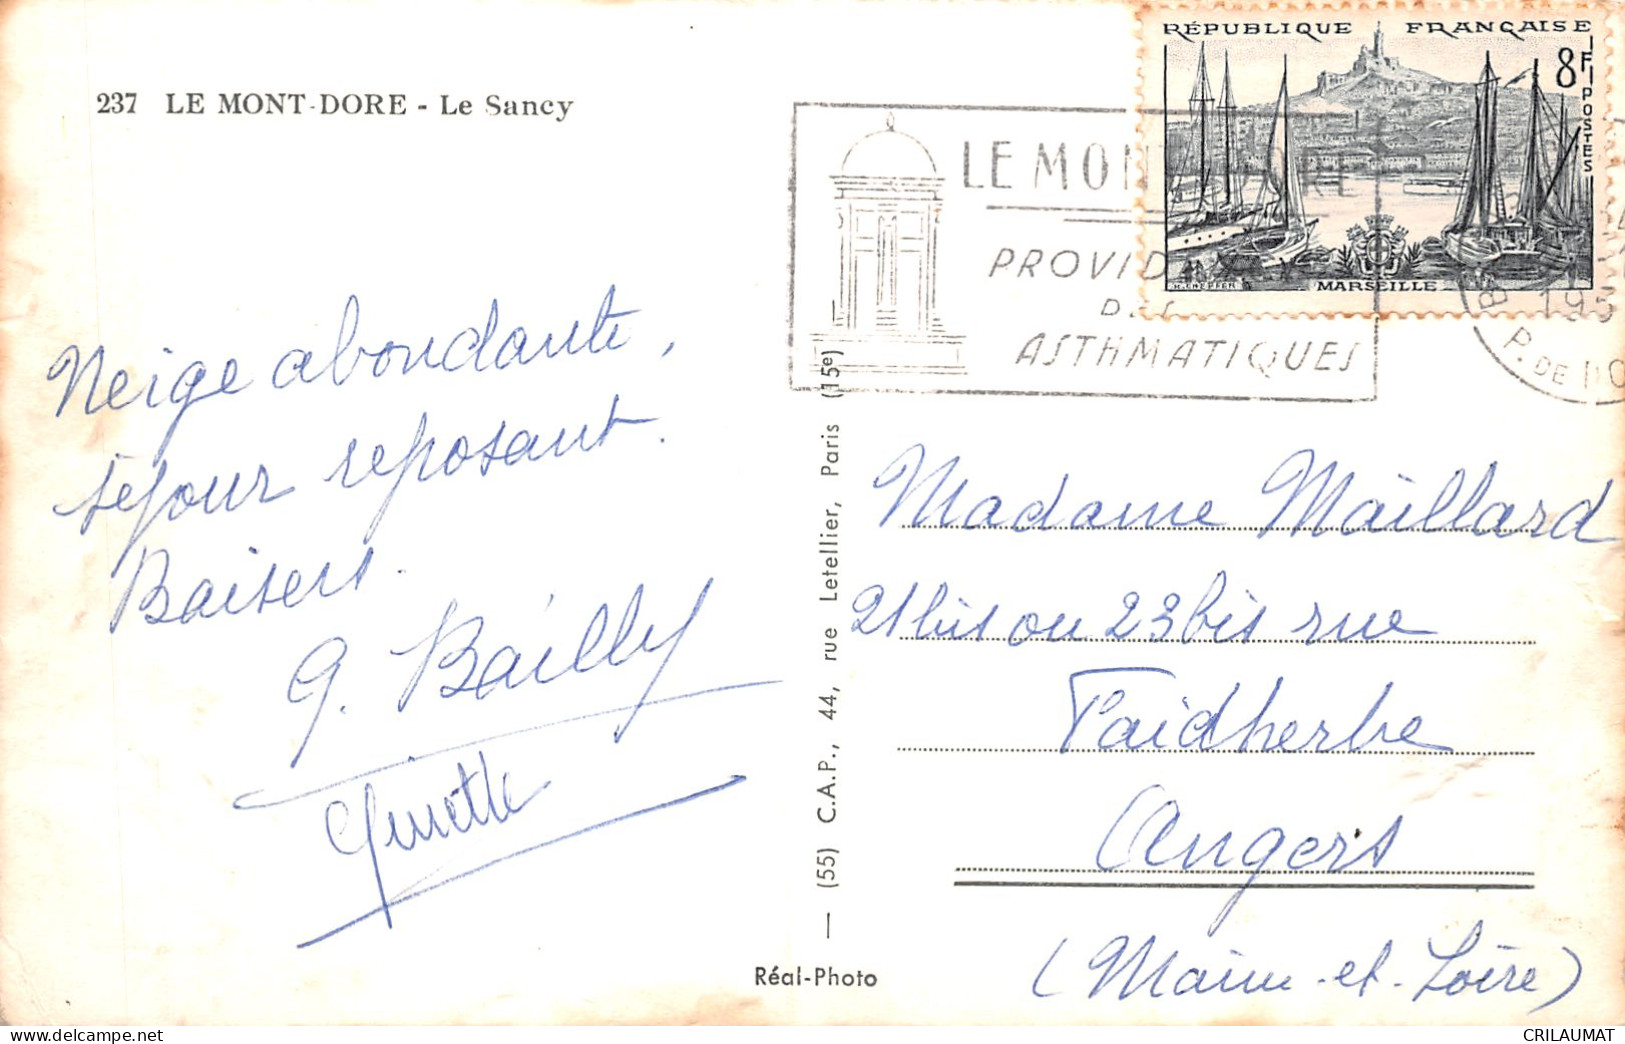 237 LE MONT-DORE - Le Sancy
Neige abondante,
séjour reposant.
Baisers.
G. Bailly
Ginette
(55) C.A.P., 44, rue Letellier, Paris (15e)
Réal-Photo
LE MONT DORE
PROVID
DES
ASTHMATIQUES
RÉPUBLIQUE FRANÇAISE
8F
POSTES
H. CHEFFER
MARSEILLE
195
P. DE DO
Madame Maillard
21bis ou 23bis rue
Faidherbe
Angers
(Maine-et-Loire)
CRILAUMAT